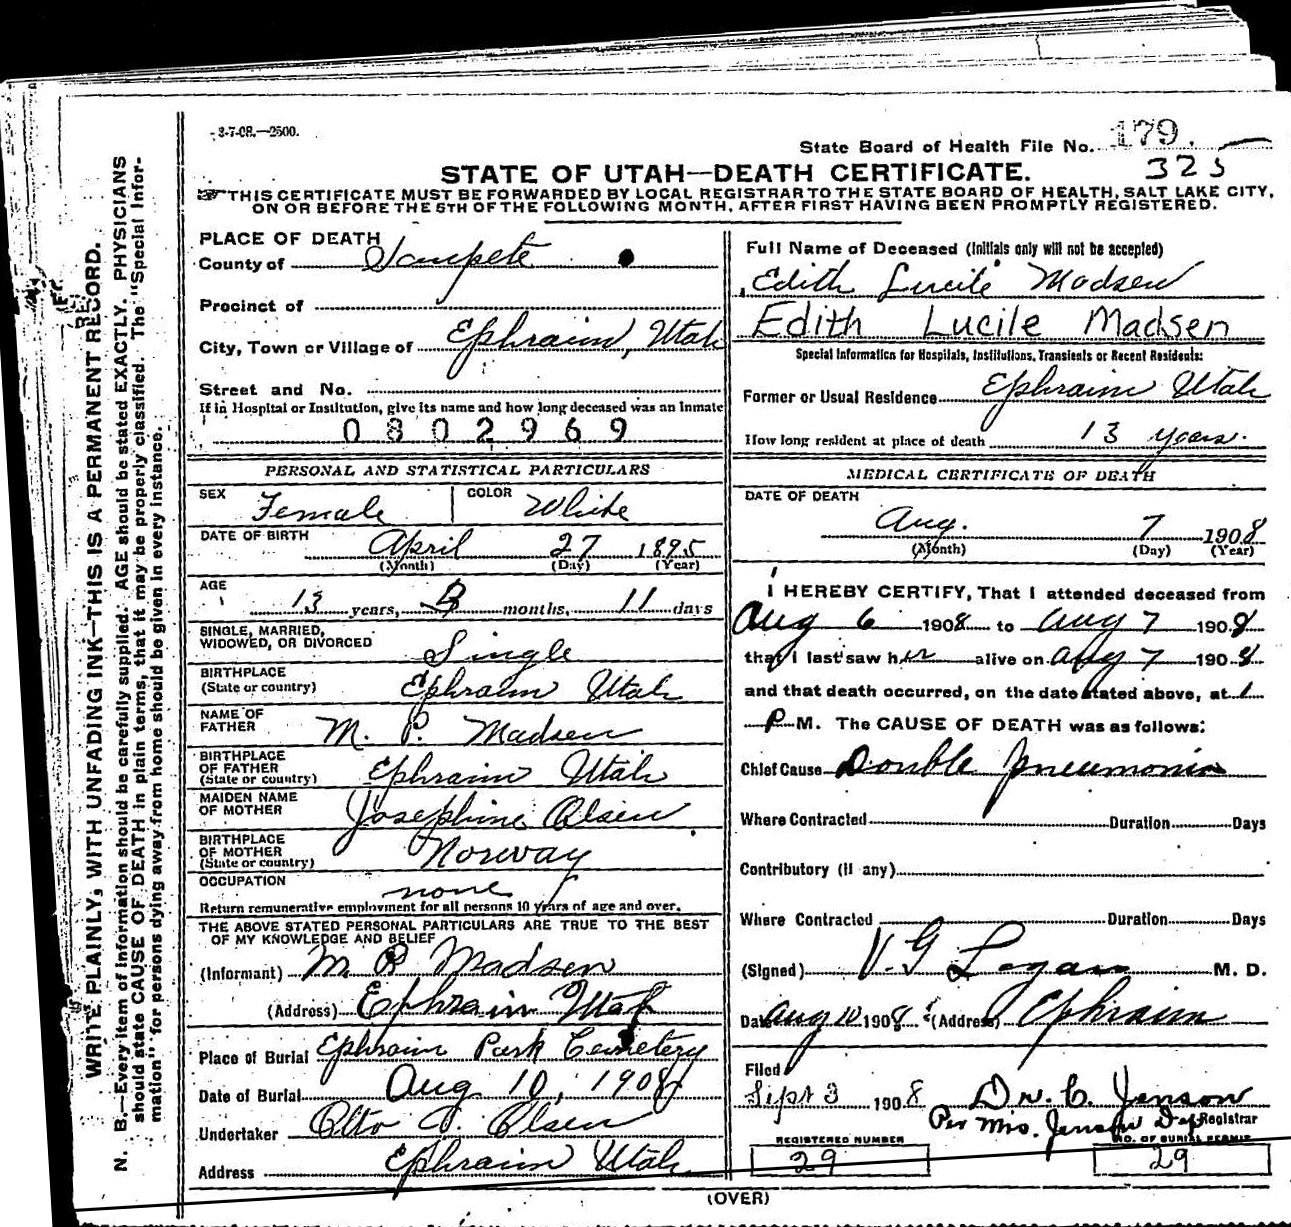 3-7-08.—2500.
State Board of Health File No. 179.
325
STATE OF UTAH—DEATH CERTIFICATE.
THIS CERTIFICATE MUST BE FORWARDED BY LOCAL REGISTRAR TO THE STATE BOARD OF HEALTH, SALT LAKE CITY,
ON OR BEFORE THE 5TH OF THE FOLLOWING MONTH, AFTER FIRST HAVING BEEN PROMPTLY REGISTERED.
PLACE OF DEATH
County of Sanpete
Precinct of
City, Town or Village of Ephraim, Utah
Street and No.
If in Hospital or Institution, give its name and how long deceased was an inmate
0802969
PERSONAL AND STATISTICAL PARTICULARS
SEX Female COLOR White
DATE OF BIRTH April 27 1895
(Month) (Day) (Year)
AGE 13 years, 3 months, 11 days
SINGLE, MARRIED,
WIDOWED, OR DIVORCED Single
BIRTHPLACE
(State or country) Ephraim Utah
NAME OF
FATHER M. P. Madsen
BIRTHPLACE
OF FATHER
(State or country) Ephraim Utah
MAIDEN NAME
OF MOTHER Josephine Olsen
BIRTHPLACE
OF MOTHER
(State or country) Norway
OCCUPATION none
Return remunerative employment for all persons 10 years of age and over.
THE ABOVE STATED PERSONAL PARTICULARS ARE TRUE TO THE BEST
OF MY KNOWLEDGE AND BELIEF
(Informant) M. P. Madsen
(Address) Ephraim Utah
Place of Burial Ephraim Park Cemetery
Date of Burial Aug 10, 1908
Undertaker Otto Olsen
Address Ephraim Utah
Full Name of Deceased (Initials only will not be accepted)
Edith Lucile Madsen
Edith Lucile Madsen
Special Information for Hospitals, Institutions, Transients or Recent Residents:
Former or Usual Residence Ephraim Utah
How long resident at place of death 13 years.
MEDICAL CERTIFICATE OF DEATH
DATE OF DEATH
Aug. 7 1908
(Month) (Day) (Year)
I HEREBY CERTIFY, That I attended deceased from
Aug 6 1908 to Aug 7 1908
that I last saw her alive on Aug 7 1908
and that death occurred, on the date stated above, at 1
P M. The CAUSE OF DEATH was as follows:
Chief Cause Double Pneumonia
Where Contracted Duration Days
Contributory (if any)
Where Contracted Duration Days
(Signed) V. G. Logan M. D.
Date Aug 10 1908 (Address) Ephraim
Filed
Sept 3 1908 Dr. C. Jenson
Registrar
Per Mrs. Jenson Dep
REGISTERED NUMBER
29
NO. OF BURIAL PERMIT
29
(OVER)
WRITE PLAINLY, WITH UNFADING INK—THIS IS A PERMANENT RECORD.
N. B.—Every item of information should be carefully supplied. AGE should be stated EXACTLY. PHYSICIANS
should state CAUSE OF DEATH in plain terms, that it may be properly classified. The "Special Infor-
mation" for persons dying away from home should be given in every instance.